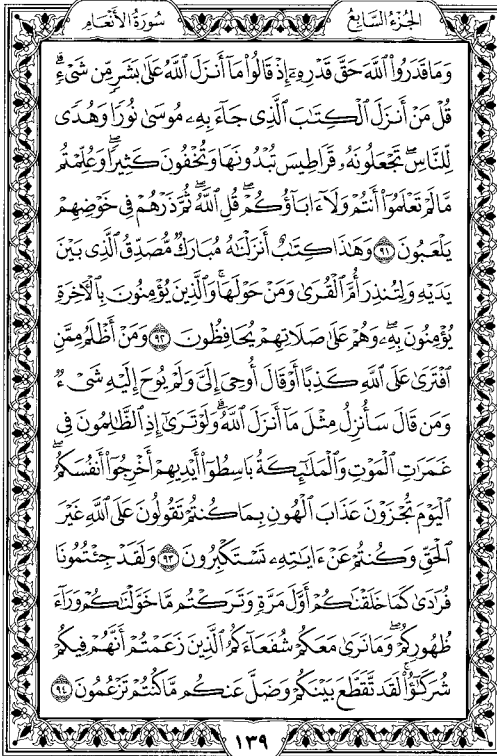 سُورَةُ الأَنْعَامِ
الجُزْءُ السَّابِعُ
وَمَا قَدَرُوا۟ ٱللَّهَ حَقَّ قَدْرِهِۦٓ إِذْ قَالُوا۟ مَآ أَنزَلَ ٱللَّهُ عَلَىٰ بَشَرٍ مِّن شَىْءٍ ۗ
قُلْ مَنْ أَنزَلَ ٱلْكِتَـٰبَ ٱلَّذِى جَآءَ بِهِۦ مُوسَىٰ نُورًا وَهُدًى
لِّلنَّاسِ ۖ تَجْعَلُونَهُۥ قَرَاطِيسَ تُبْدُونَهَا وَتُخْفُونَ كَثِيرًا ۖ وَعُلِّمْتُم
مَّا لَمْ تَعْلَمُوٓا۟ أَنتُمْ وَلَآ ءَابَآؤُكُمْ ۖ قُلِ ٱللَّهُ ۖ ثُمَّ ذَرْهُمْ فِى خَوْضِهِمْ
يَلْعَبُونَ ٩١ وَهَـٰذَا كِتَـٰبٌ أَنزَلْنَـٰهُ مُبَارَكٌ مُّصَدِّقُ ٱلَّذِى بَيْنَ
يَدَيْهِ وَلِتُنذِرَ أُمَّ ٱلْقُرَىٰ وَمَنْ حَوْلَهَا ۚ وَٱلَّذِينَ يُؤْمِنُونَ بِٱلْـَٔاخِرَةِ
يُؤْمِنُونَ بِهِۦ ۖ وَهُمْ عَلَىٰ صَلَاتِهِمْ يُحَافِظُونَ ٩٢ وَمَنْ أَظْلَمُ مِمَّنِ
ٱفْتَرَىٰ عَلَى ٱللَّهِ كَذِبًا أَوْ قَالَ أُوحِىَ إِلَىَّ وَلَمْ يُوحَ إِلَيْهِ شَىْءٌ
وَمَن قَالَ سَأُنزِلُ مِثْلَ مَآ أَنزَلَ ٱللَّهُ ۗ وَلَوْ تَرَىٰٓ إِذِ ٱلظَّـٰلِمُونَ فِى
غَمَرَٰتِ ٱلْمَوْتِ وَٱلْمَلَـٰٓئِكَةُ بَاسِطُوٓا۟ أَيْدِيهِمْ أَخْرِجُوٓا۟ أَنفُسَكُمُ ۖ
ٱلْيَوْمَ تُجْزَوْنَ عَذَابَ ٱلْهُونِ بِمَا كُنتُمْ تَقُولُونَ عَلَى ٱللَّهِ غَيْرَ
ٱلْحَقِّ وَكُنتُمْ عَنْ ءَايَـٰتِهِۦ تَسْتَكْبِرُونَ ٩٣ وَلَقَدْ جِئْتُمُونَا
فُرَٰدَىٰ كَمَا خَلَقْنَـٰكُمْ أَوَّلَ مَرَّةٍ وَتَرَكْتُم مَّا خَوَّلْنَـٰكُمْ وَرَآءَ
ظُهُورِكُمْ ۖ وَمَا نَرَىٰ مَعَكُمْ شُفَعَآءَكُمُ ٱلَّذِينَ زَعَمْتُمْ أَنَّهُمْ فِيكُمْ
شُرَكَـٰٓؤُا۟ ۚ لَقَد تَّقَطَّعَ بَيْنَكُمْ وَضَلَّ عَنكُم مَّا كُنتُمْ تَزْعُمُونَ ٩٤
١٣٩